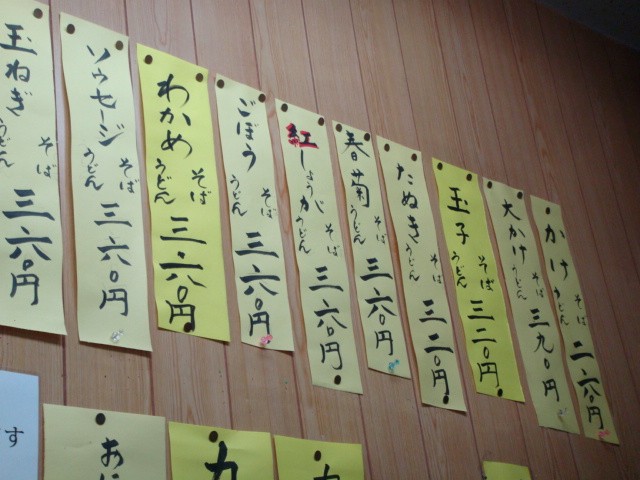 かけ そば うどん 二六〇円
大かけ そば うどん 三九〇円
玉子 そば うどん 三二〇円
たぬき そば うどん 三二〇円
春菊 そば うどん 三六〇円
紅しょうが そば うどん 三六〇円
ごぼう そば うどん 三六〇円
わかめ そば うどん 三六〇円
ソーセージ そば うどん 三六〇円
玉ねぎ そば うどん 三六〇円
す